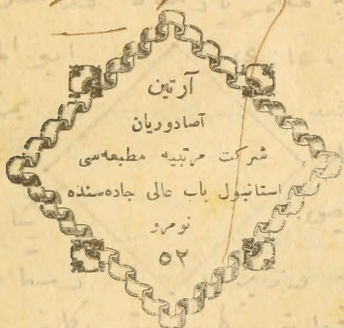 آرتين
آصادوريان
شركت مرتبيه مطبعه‌سى
استانبول باب عالى جاده‌سنده
نومرو
٥٢